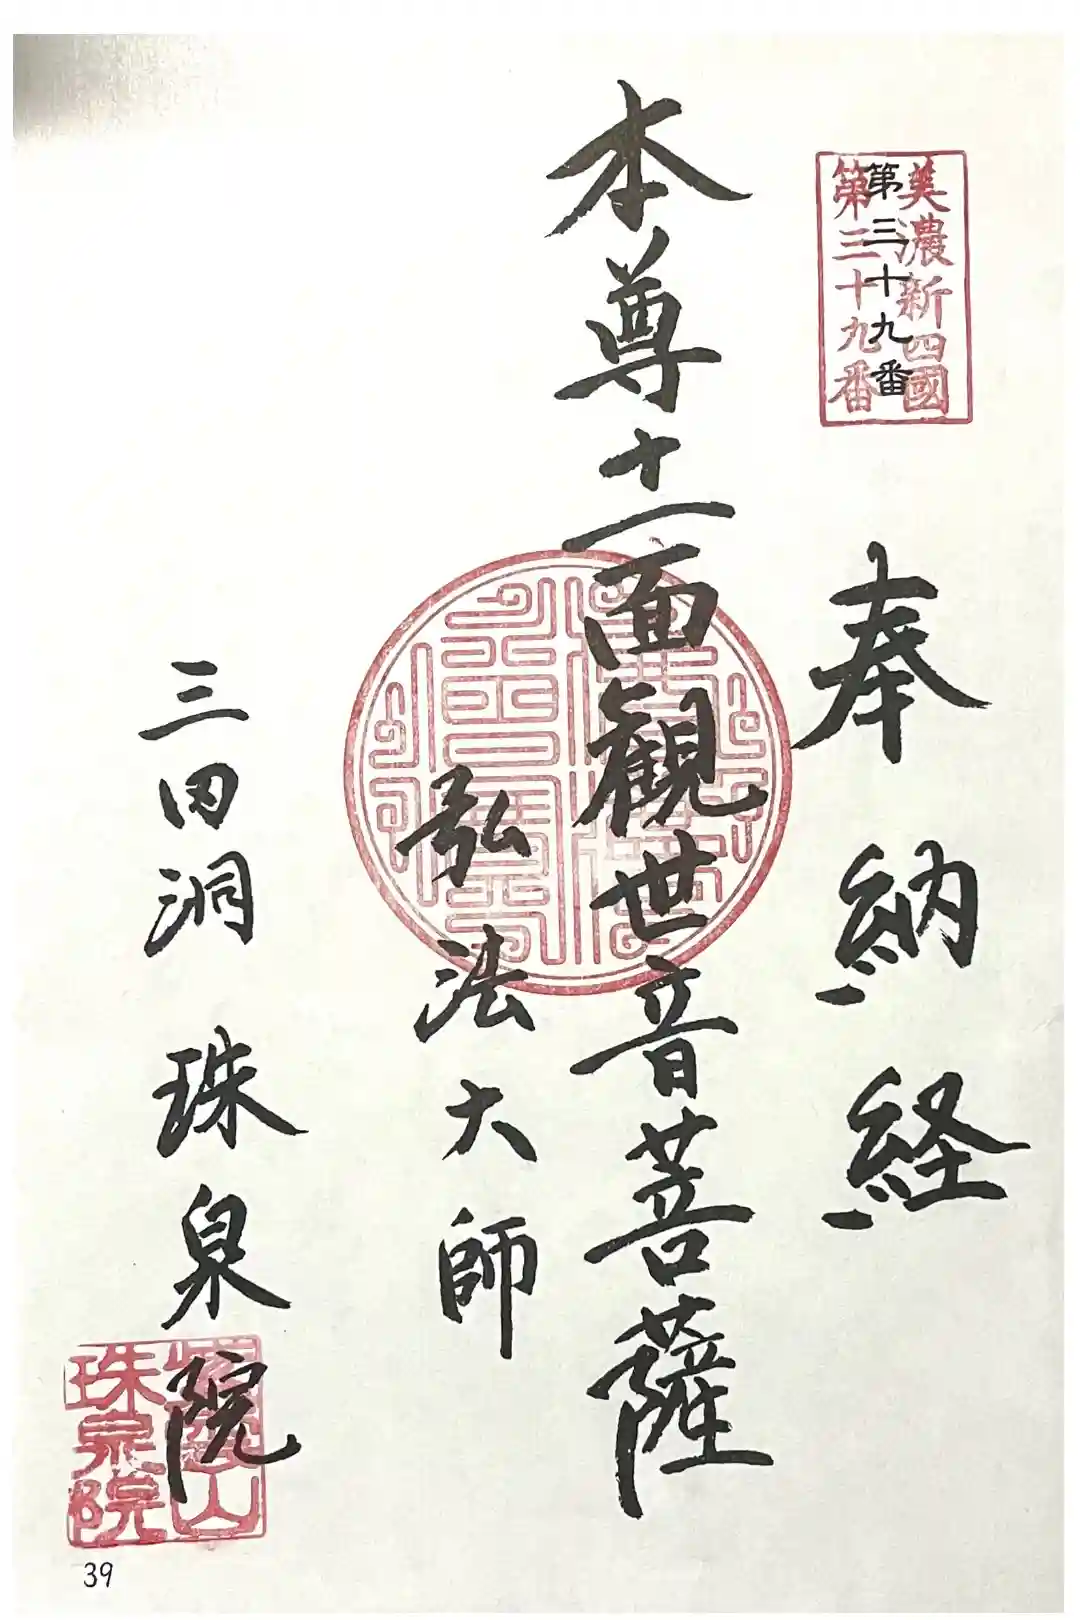 美濃新四國
第三十九番
第三十九番
奉納経
本尊十一面観世音菩薩
弘法大師
三田洞 珠泉院
山
珠泉院
39